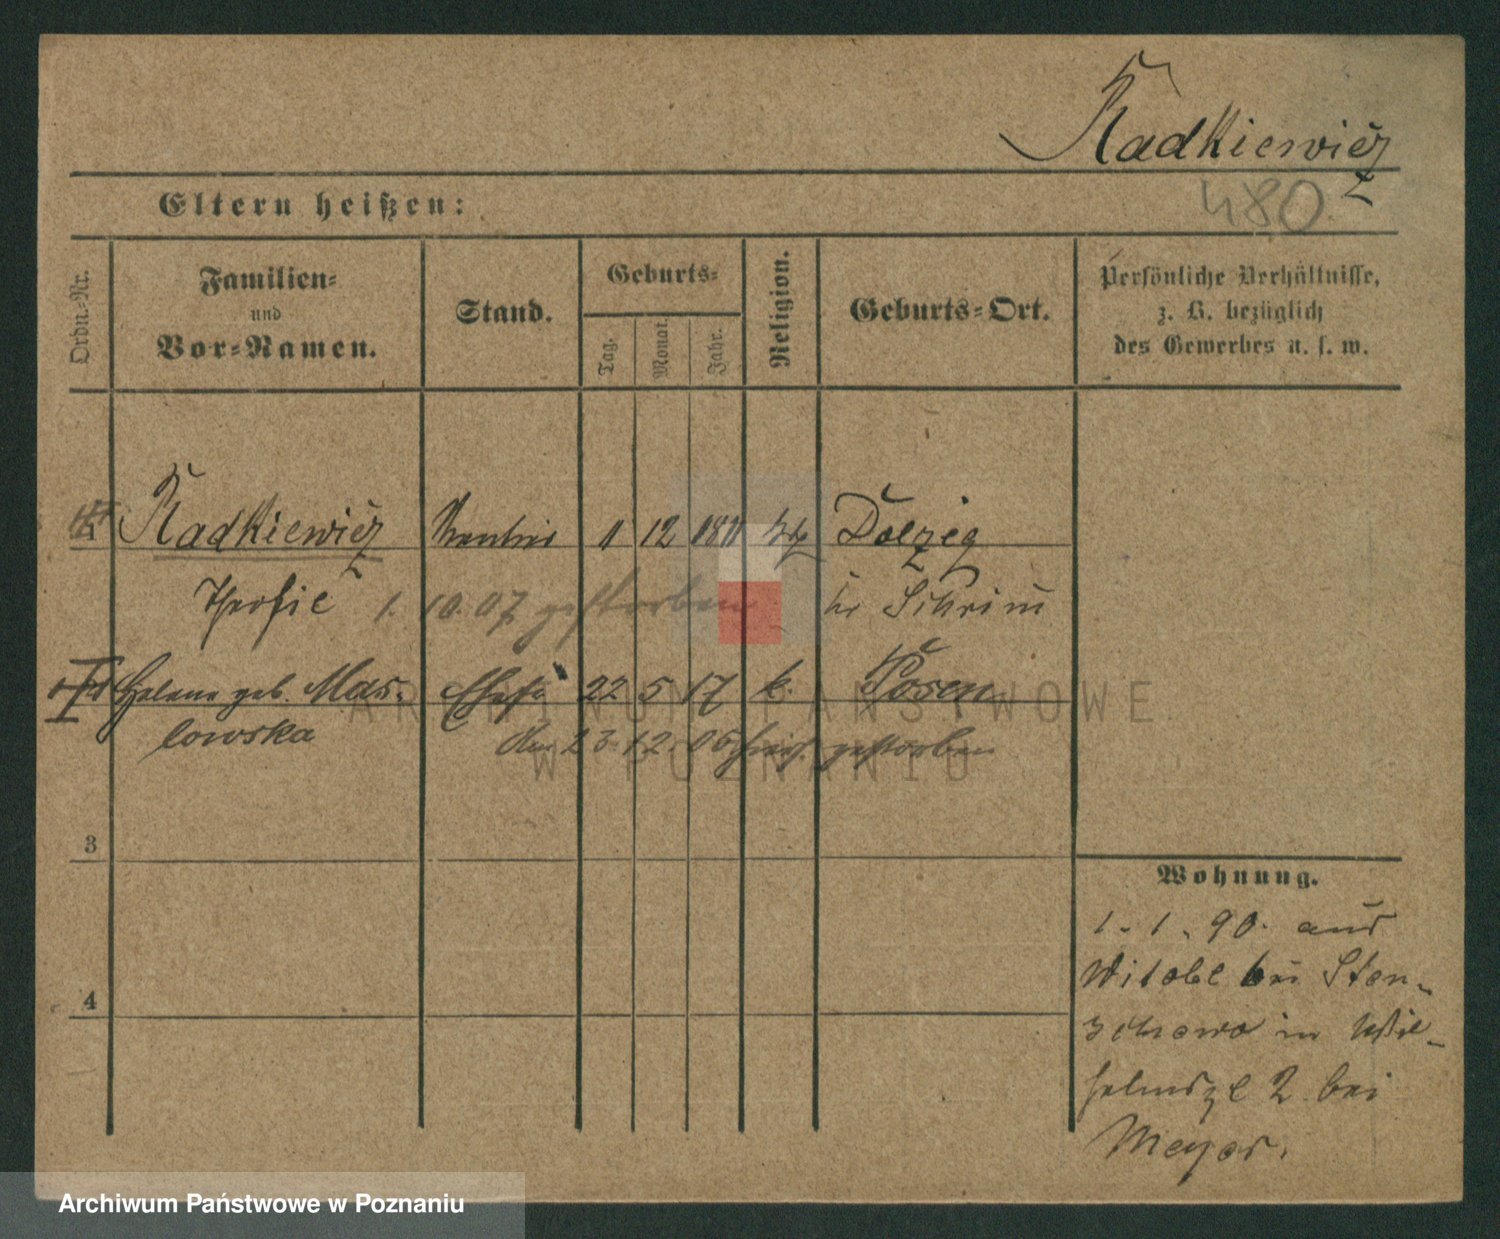 Radkiewicz
480
Eltern heißen:
Ordn.-Nr.
Familien-
und
Vor-Namen.
Stand.
Geburts-
Tag.
Monat.
Jahr.
Religion.
Geburts-Ort.
Persönliche Verhältnisse,
z. B. bezüglich
des Gewerbes u. s. w.
1 Radkiewicz Rentier 11 12 Dolzig
1. 10. 07 gestorben Schrimm
Helene geb. Mas- Ehefr. 22 5 17 k. Posen
lowska den 23. 12. 05 hier gestorben
3
4
Wohnung.
1. 1. 90. aus
Witobel bei Sten-
schewo in Wil-
helmspl 2 bei
Meyer.
ARCHIWUM PAŃSTWOWE
W POZNANIU
Archiwum Państwowe w Poznaniu